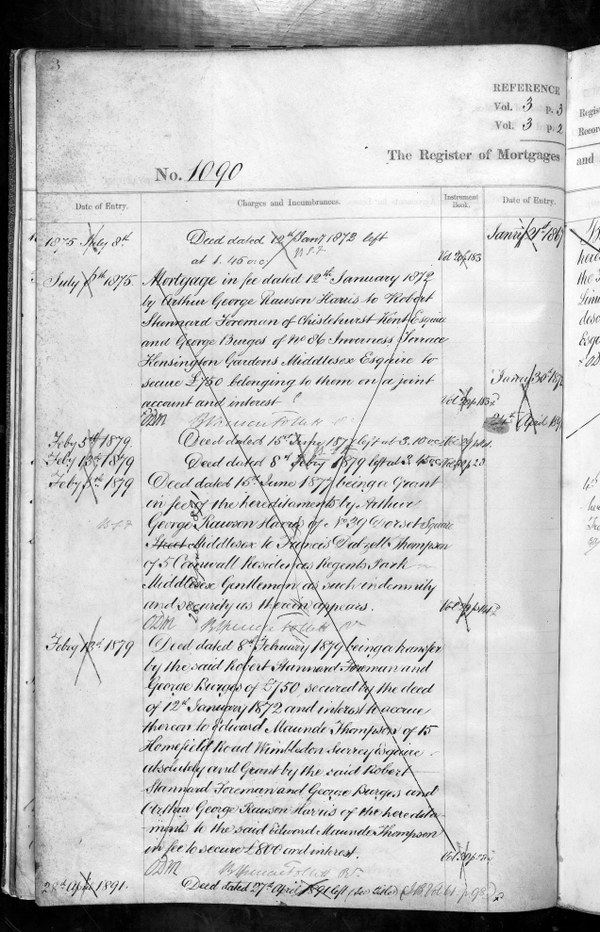 3
REFERENCE
Vol. 3 p. 3
Vol. 3 p. 2
The Register of Mortgages
No. 1090
Date of Entry.
Charges and Incumbrances.
Instrument Book.
Date of Entry.
1875 July 8th
Deed dated 12th Jany 1872 left
at 1.45
July 8th 1875.
Mortgage in fee dated 12th January 1872
by Arthur George Rawson Harris to Robert
Stannard Foreman of Chislehurst Kent Esquire
and George Burges of No 86 Inverness Terrace
Kensington Gardens Middlesex Esquire to
secure £750 belonging to them on a joint
account and interest
Feby 5th 1879
Deed dated 15th June 1877 left at 3.10
Feby 13th 1879
Deed dated 8th Feby 1879 left at 3.45
Feby 1879
Deed dated 15th June 1877 being a Grant
in fee of the hereditaments by Arthur
George Rawson Harris of No 39 Dorset Square
Street Middlesex to Francis Dalzell Thompson
of 5 Cornwall Residences Regents Park
Middlesex Gentleman as such indemnity
and security as therein appears.
Feby 13th 1879
Deed dated 8th February 1879 being a transfer
by the said Robert Stannard Foreman and
George Burges of £750 secured by the deed
of 12th January 1872 and interest to accrue
thereon to Edward Maunde Thompson of 15
Homefield Road Wimbledon Surrey Esquire
absolutely and Grant by the said Robert
Stannard Foreman and George Burges and
Arthur George Rawson Harris of the heredita-
-ments to the said Edward Maunde Thompson
in fee to secure £800 and interest.
28th April 1891.
Deed dated 27th April 1891 left
Regist
Record
and